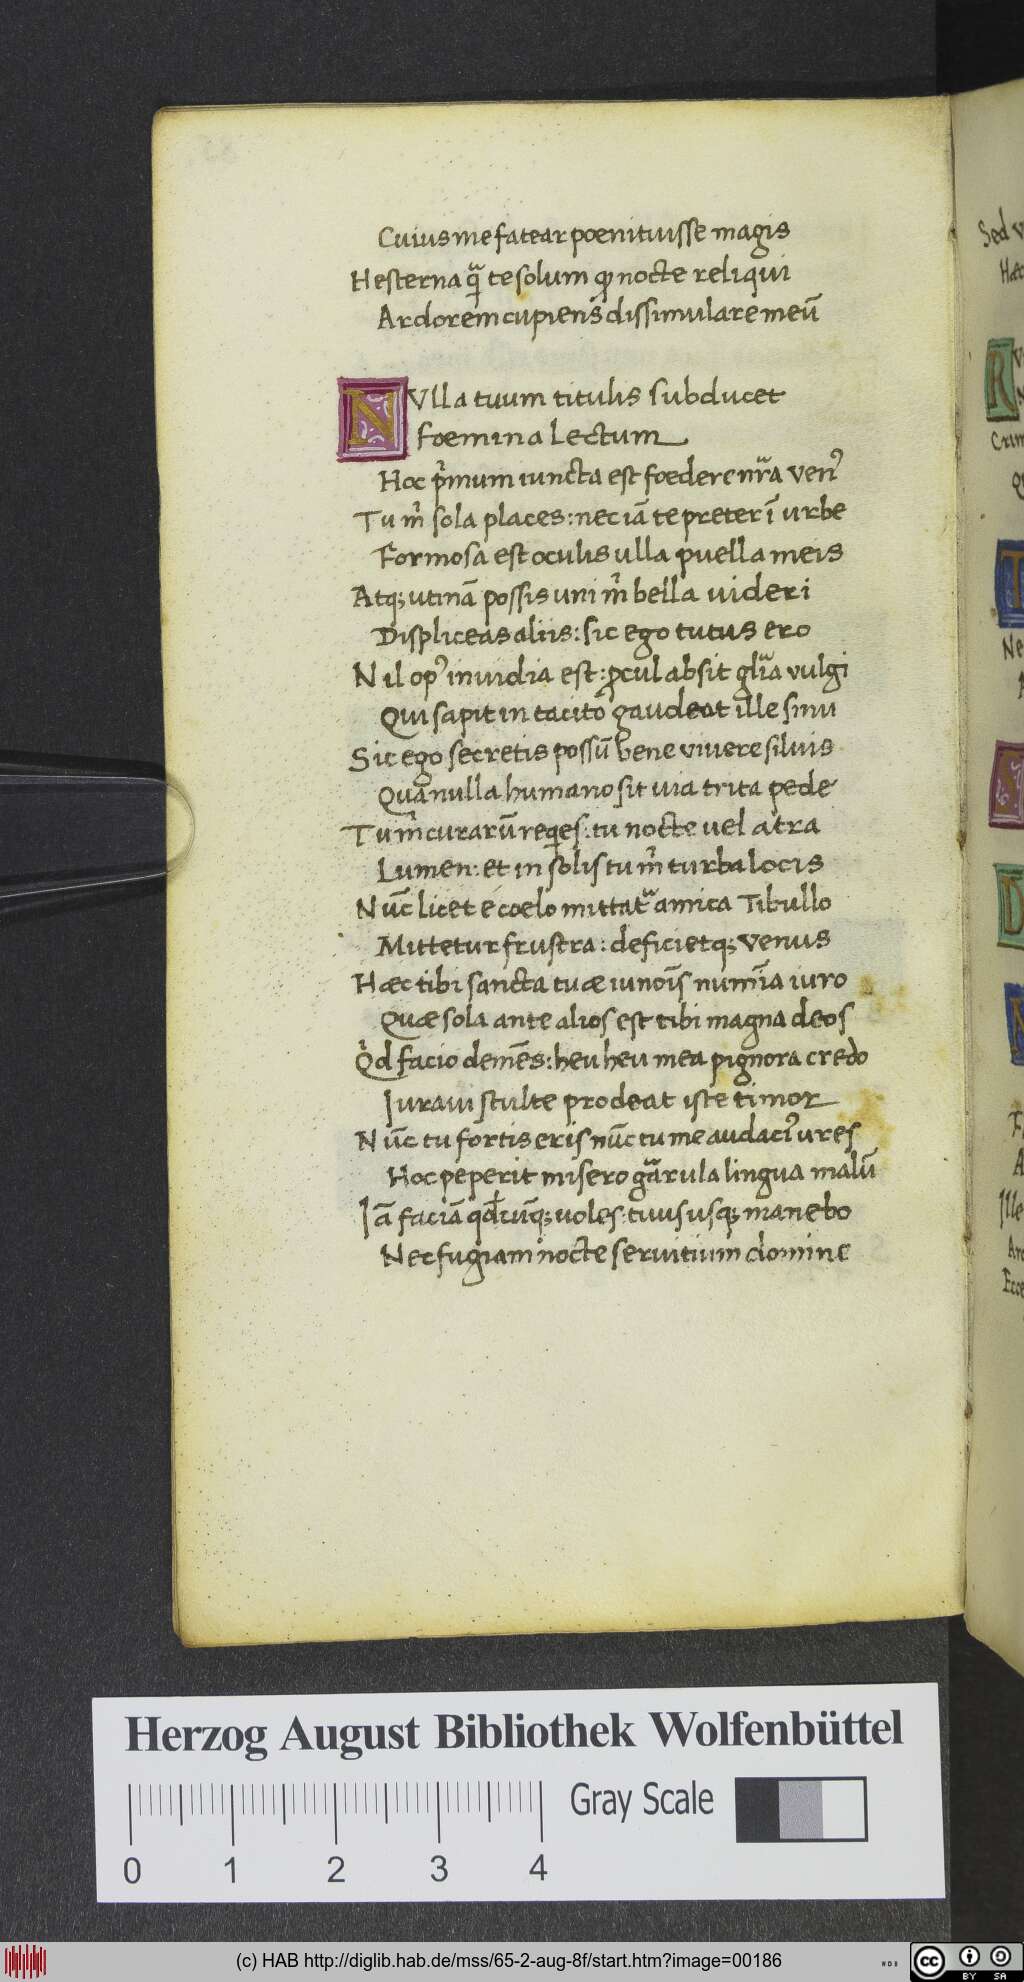 Cuius me fatear poenituisse magis
Hesterna qͣ te solum ꝙ nocte reliqui
Ardorem cupiens dissimulare meū
NVlla tuum titulis subducet
foemina Lectum
Hoc pͥmum iuncta est foedere nr̄a venꝰ
Tu m̄ sola places: nec iā te preter ī urbe
Formosa est oculis ulla puella meis
Atq; utinā possis uni m̄ bella uideri
Displiceas aliis: sic ego tutus ero
Nil opꝰ inuidia est: ꝓcul absit glīa vulgi
Qui sapit in tacito gaudeat ille sinu
Sic ego secretis possū bene viuere siluis
Qua nulla humano sit uia trita pede
Tu m̄ curarū reqes: tu nocte uel atra
Lumen: et in solis tu m̄ turba locis
Nūc licet é coelo mittatͬ amica Tibullo
Mittetur frustra: deficietq; Venus
Hæc tibi sancta tuæ iunoīs numīa iuro
Quæ sola ante alios est tibi magna deos
Qͥd facio demēs: heu heu mea pignora credo
Iuraui stulte prodeat iste timor
Nūc tu fortis eris nūc tu me audaciꝰ ures
Hoc peperit misero garrula lingua malū
Iā faciā qdcūq; uoles: tuus usq; manebo
Nec fugiam nocte seruitium domine
Sed v
Hæc
R
Crim
T
Ne
D
N
Ille
Ecce
Herzog August Bibliothek Wolfenbüttel
Gray Scale
0 1 2 3 4
(c) HAB http://diglib.hab.de/mss/65-2-aug-8f/start.htm?image=00186
cc BY SA